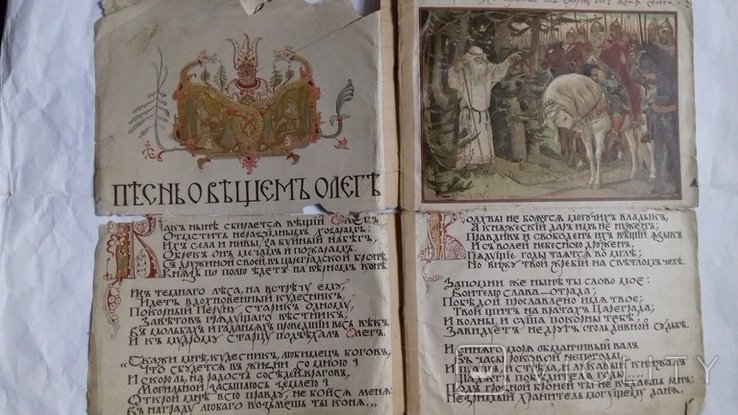 ПѢСНЬ О ВѢЩЕМЪ ОЛЕГѢ
Какъ нынѣ сбирается вѣщій Олегъ
Отмстить неразумнымъ хозарамъ:
Ихъ села и нивы за буйный набѣгъ
Обрекъ онъ мечамъ и пожарамъ.
Съ дружиной своей въ цареградской бронѣ,
Князь по полю ѣдетъ на вѣрномъ конѣ.
Изъ темнаго лѣса, на встрѣчу ему,
Идетъ вдохновенный кудесникъ,
Покорный Перуну старикъ одному,
Завѣтовъ грядущаго вѣстникъ,
Въ мольбахъ и гаданьяхъ проведшій весь вѣкъ.
И къ мудрому старцу подъѣхалъ Олегъ.
"Скажи мнѣ, кудесникъ, любимецъ боговъ,
Что сбудется въ жизни со мною?
И скоро ль на радость сосѣдей-враговъ,
Могильной засыплюсь землею?
Открой мнѣ всю правду, не бойся меня:
Въ награду любаго возьмешь ты коня."
Волхвы не боятся могучихъ владыкъ,
А княжескій даръ имъ не нуженъ;
Правдивъ и свободенъ ихъ вѣщій языкъ
И съ волей небесною друженъ.
Грядущіе годы таятся во мглѣ;
Но вижу твой жребій на свѣтломъ челѣ.
Запомни же нынѣ ты слово мое:
Воителю слава—отрада;
Побѣдой прославлено имя твое;
Твой щитъ на вратахъ Цареграда;
И волны и суша покорны тебѣ;
Завидуетъ недругъ столь дивной судьбѣ.
И синяго моря обманчивый валъ
Въ часы роковой непогоды,
И пращъ, и стрѣла, и лукавый кинжалъ
Щадятъ побѣдителя годы
Подъ грозной броней ты не вѣдаешь ранъ;
Незримый хранитель могущему данъ.